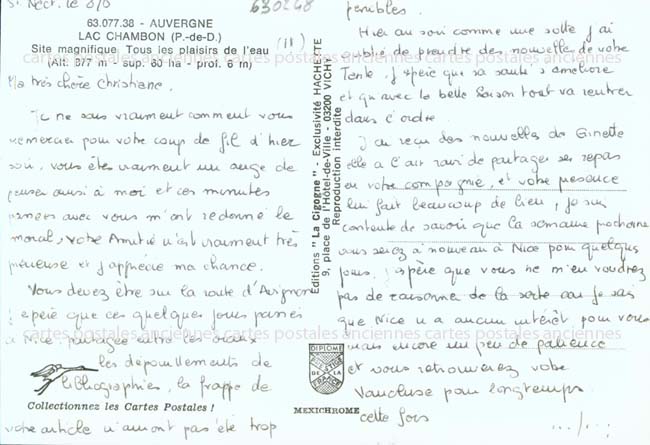 St Nect. le 8/6
630248
63.077.38 - AUVERGNE
LAC CHAMBON (P.-de-D.)
Site magnifique Tous les plaisirs de l'eau
(Alt. 877 m - sup. 60 ha - prof. 6 m)
(11)
Ma très chère Christiane,
Je ne sais vraiment comment vous
remercier pour votre coup de fil d'hier
soir, vous êtes vraiment un ange de
penser aussi à moi et ces minutes
passées avec vous m'ont redonné le
moral, votre Amitié m'est vraiment très
précieuse et j'apprécie ma chance.
Vous devez être sur la route d'Avignon
j'espère que ces quelques jours passés
à Nice, partagée entre les
les dépouillements de
bibliographies, la frappe de
votre article n'auront pas été trop
Collectionnez les Cartes Postales !
Editions "La Cigogne" - Exclusivité HACHETTE
9, place de l'Hôtel-de-Ville - 03200 VICHY
Reproduction interdite
DIPLOME
DE LA
MEXICHROME
pénibles.
Hier au soir comme une sotte j'ai
oublié de prendre des nouvelles de votre
Tante, j'espère que sa santé s'améliore
et qu'avec la belle saison tout va rentrer
dans l'ordre.
J'ai reçu des nouvelles de Ginette
elle a l'air ravi de partager ses repas
en votre compagnie, et votre présence
lui fait beaucoup de bien, je suis
contente de savoir que la semaine prochaine
vous serez à nouveau à Nice pour quelques
jours, j'espère que vous ne m'en voudrez
pas de raisonner de la sorte car je sais
que Nice n'a aucun intérêt pour vous
mais encore un peu de patience
et vous retrouverez votre
Vaucluse pour longtemps
cette fois
.../...
cartes postales anciennes cartes postales anciennes cartes postales anciennes